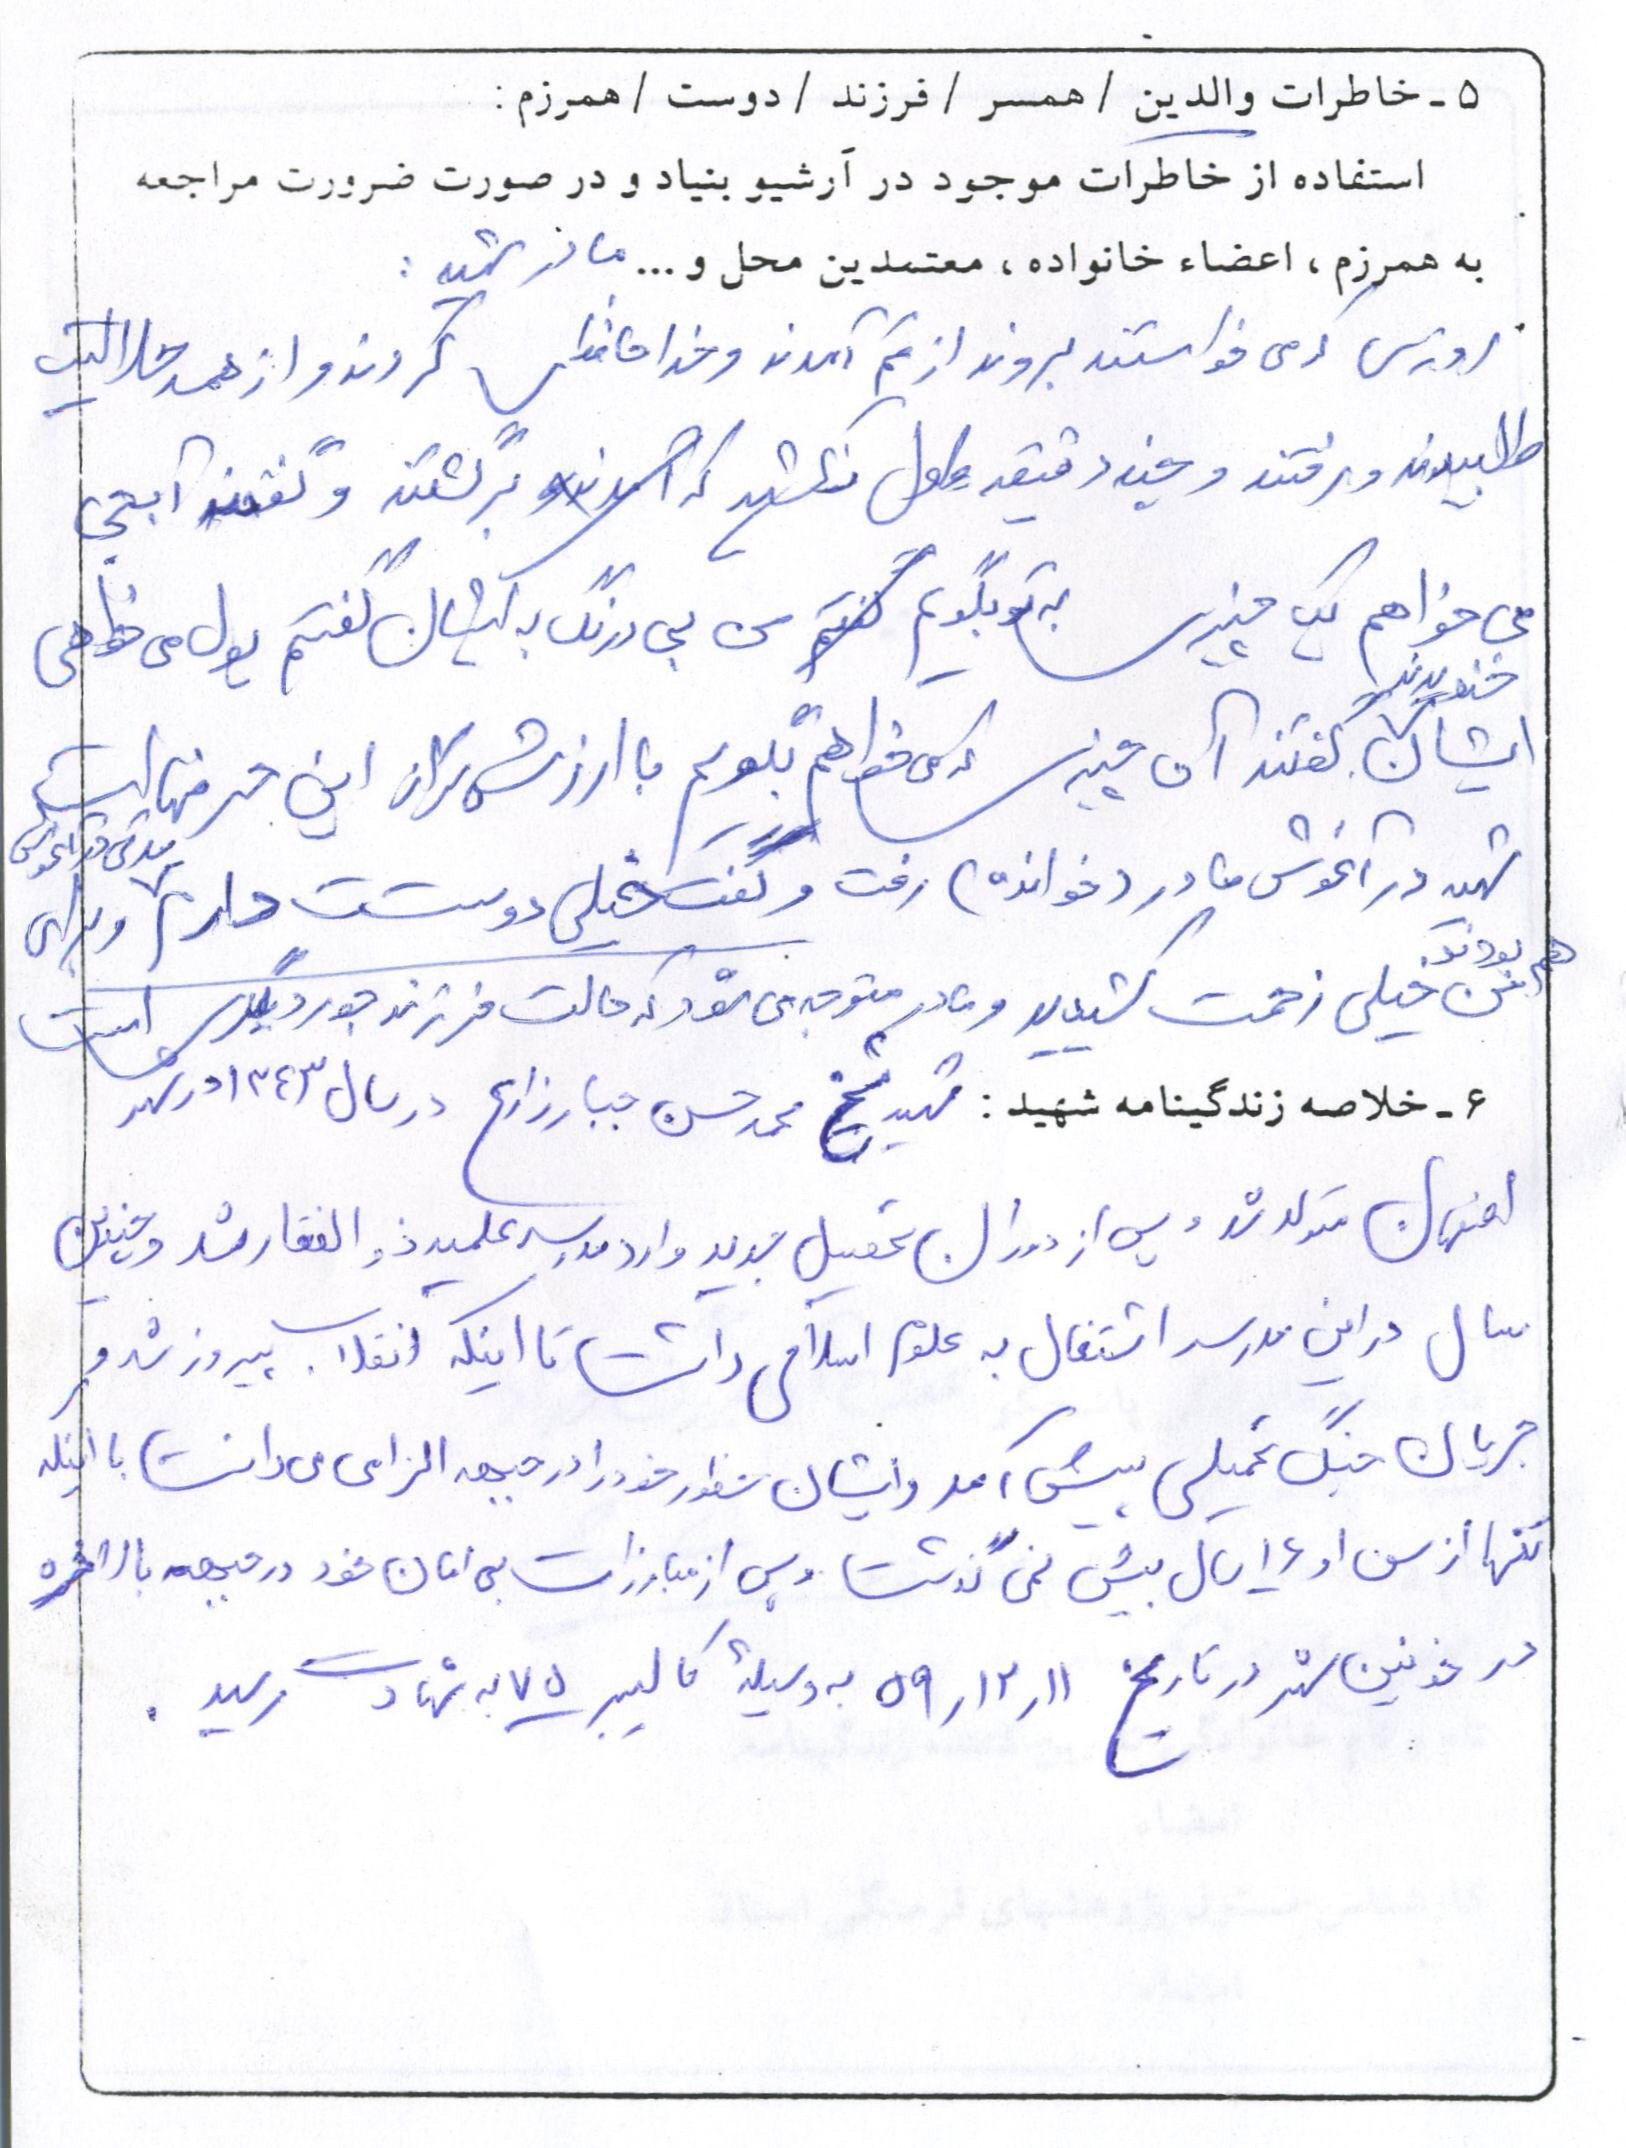 ۵ ـ خاطرات والدین / همسر / فرزند / دوست / همرزم :
استفاده از خاطرات موجود در آرشیو بنیاد و در صورت ضرورت مراجعه
به همرزم ، اعضاء خانواده ، معتمدین محل و ... مادر شهید :
روزی که می خواستند بروند از قم آمدند و خداحافظی کردند و از همه حلالیت
طلبیدند و رفتند و چند دقیقه طول نکشید که برگشتند و گفتند آبجی
می خواهم یک چیزی به تو بگویم من بی درنگ به ایشان گفتم پول می خواهی
خندیدند
ایشان گفتند آن چیزی که می خواهم بگویم با ارزش تر از این حرفهاست
شهید در آغوش مادر (خوانده) رفت و گفت خیلی دوستت دارم و برای
مدتی در آغوش
هم بودند
من خیلی زحمت کشیدید و مادر متوجه می شود که حالت فرزند جور دیگری است
۶ ـ خلاصه زندگینامه شهید : شهید شیخ محمد حسن جبار زارع در سال ۱۳۴۳ در شهر
اصفهان متولد شد و پس از دوران تحصیل جدید وارد مدرسه علمیه ذوالفقار شد و چندین
سال در این مدرسه اشتغال به علوم اسلامی داشت تا اینکه انقلاب پیروز شد و
جریان جنگ تحمیلی پیش آمد و ایشان حضور خود را در جبهه الزامی می دانست با اینکه
تنها از سن او ۱۶ سال بیش نمی گذشت و پس از مبارزات بی امان خود در جبهه بالاخره
در خونین شهر در تاریخ ۱۱ر۱۲ر۵۹ به وسیلهٔ کالیبر ۷۵ به شهادت رسید .